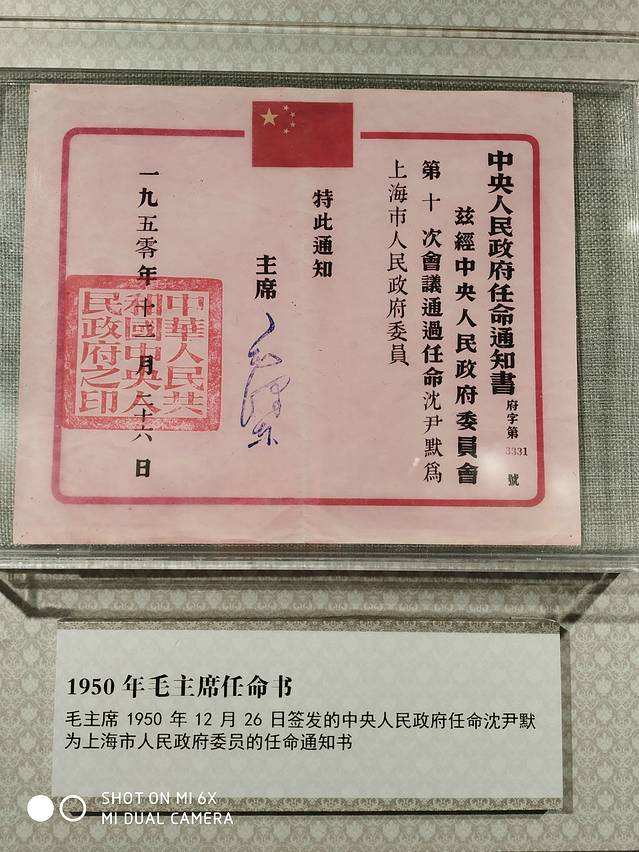 中央人民政府任命通知書 府字第3331號
兹經中央人民政府委員會
第十次會議通過任命沈尹默爲
上海市人民政府委員
特此通知
主席 毛澤东
一九五零年十二月二十六日
中華人民共
和國中央人
民政府之印
1950 年毛主席任命书
毛主席 1950 年 12 月 26 日签发的中央人民政府任命沈尹默
为上海市人民政府委员的任命通知书
SHOT ON MI 6X
MI DUAL CAMERA